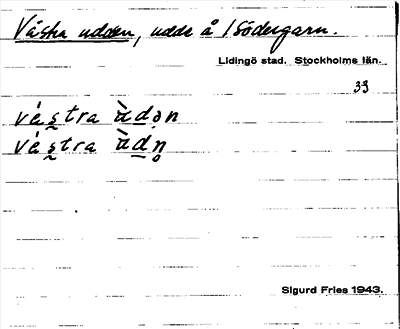 Västra udden, udde å Södergarn.
Lidingö stad. Stockholms län.
33
vɛ́stra ùdən
vɛ́stra ùdn̥
Sigurd Fries 1943.